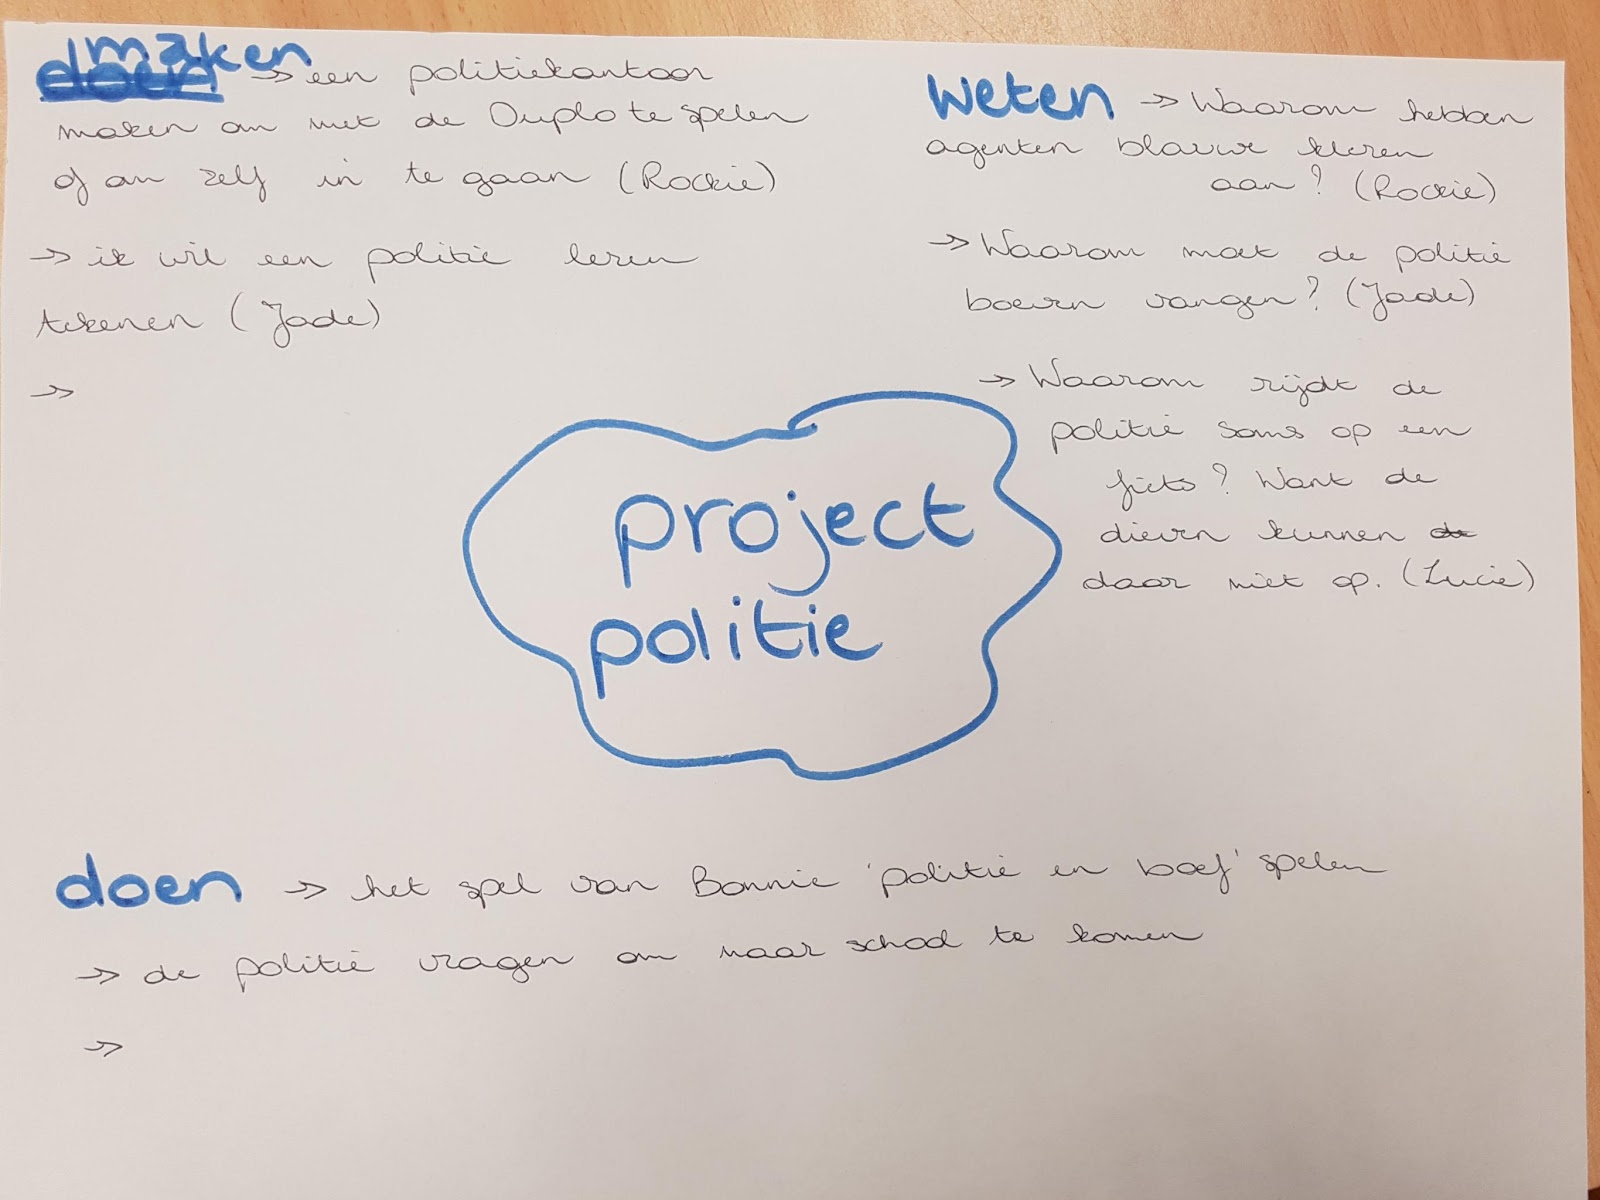 maken
doen → een politiekantoor
maken om met de Duplo te spelen
of om zelf in te gaan (Rockie)
→ ik wil een politie leren
tekenen (Jade)
→
weten → Waarom hebben
agenten blauwe kleren
aan? (Rockie)
→ Waarom moet de politie
boeven vangen? (Jade)
→ Waarom rijdt de
politie soms op een
fiets? Want de
dieven kunnen de
daar niet op. (Lucie)
project
politie
doen → het spel van Bonnie 'politie en boef' spelen
→ de politie vragen om naar school te komen
→